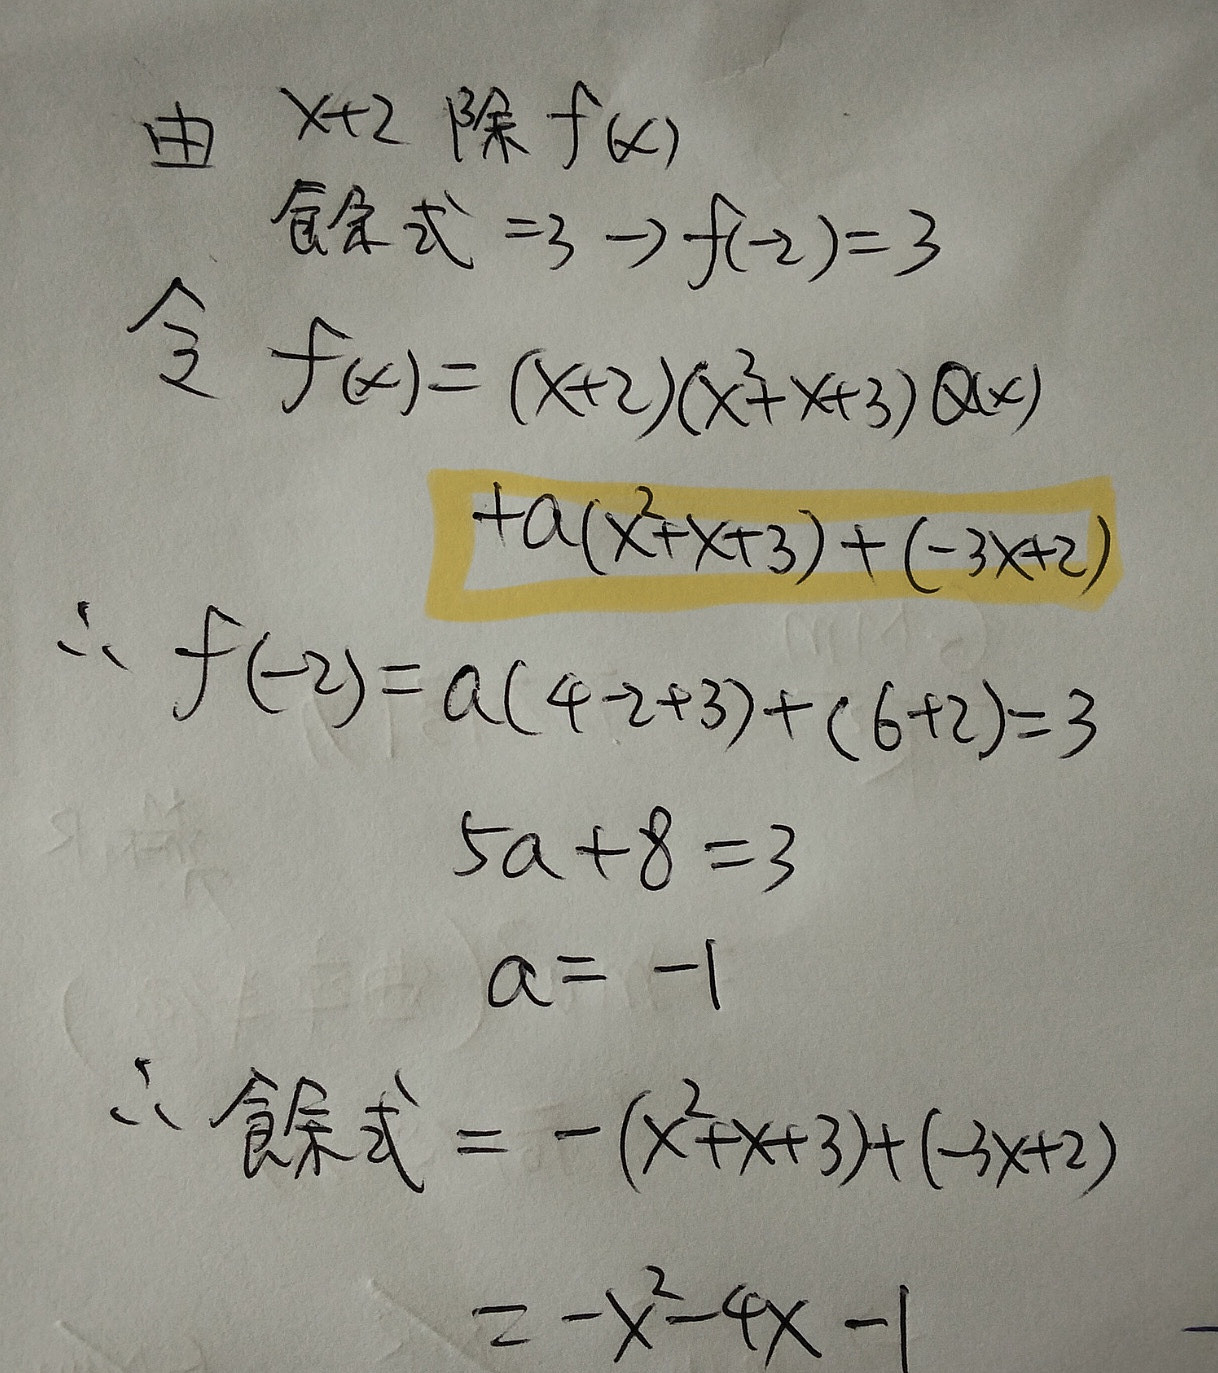 由 x+2 除 f(x)
餘式 =3 → f(-2)=3
令 f(x)= (x+2)(x²+x+3) Q(x)
+a(x²+x+3)+(-3x+2)
∴ f(-2)=a(4-2+3)+(6+2)=3
5a+8=3
a= -1
∴ 餘式 = -(x²+x+3)+(-3x+2)
= -x²-4x-1